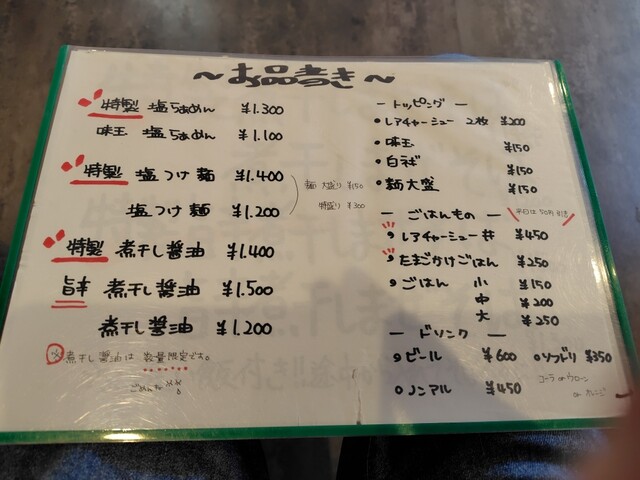 ～お品書き～
特製 塩らぁめん ¥1.300
味玉 塩らぁめん ¥1.100
特製 塩つけ麺 ¥1.400
塩つけ麺 ¥1.200
麺 大盛り ¥150
特盛り ¥300
特製 煮干し醤油 ¥1.400
旨辛 煮干し醤油 ¥1.500
煮干し醤油 ¥1.200
※煮干し醤油は 数量限定です。
ートッピングー
レアチャーシュー 2枚 ¥200
味玉 ¥150
白ネギ ¥150
麺大盛 ¥150
ーごはんものー
平日は50円引き
レアチャーシュー丼 ¥450
たまごかけごはん ¥250
ごはん 小 ¥150
中 ¥200
大 ¥250
ードリンクー
ビール ¥600
ソフドリ ¥350
コーラ or ウーロン
or オレンジ
ノンアル ¥450